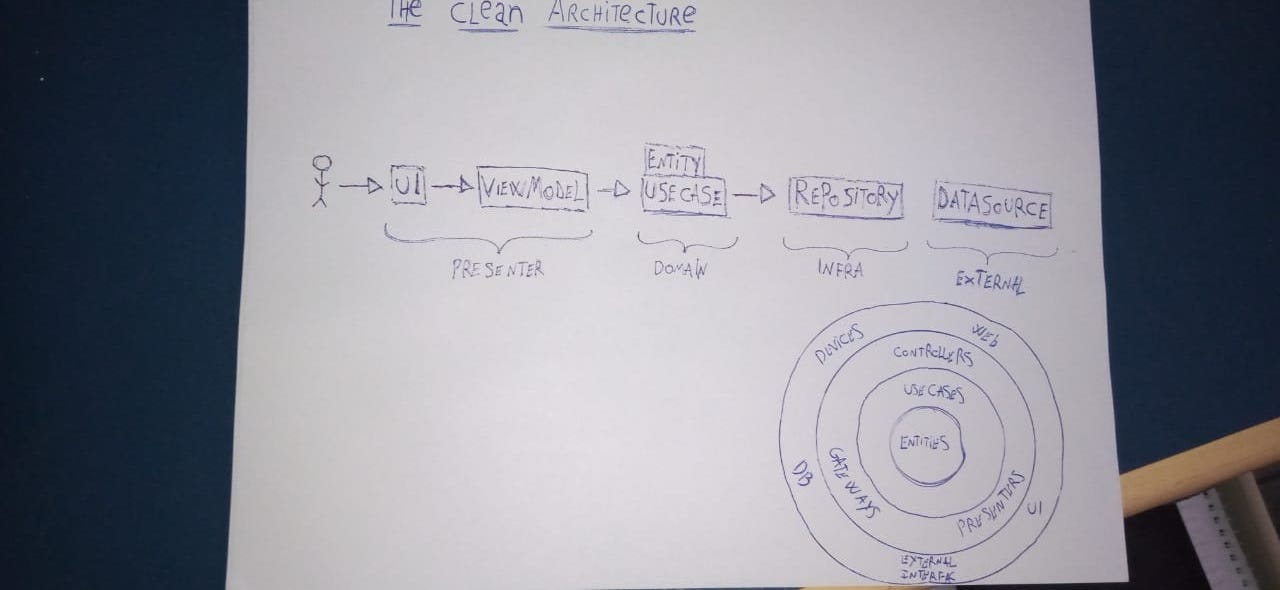 THE CLEAN ARCHITECTURE
ENTITY
UI VIEWMODEL USECASE REPOSITORY DATASOURCE
PRESENTER DOMAIN INFRA EXTERNAL
DEVICES WEB
CONTROLLERS
USE CASES
ENTITIES
DB GATEWAYS PRESENTERS UI
EXTERNAL
INTERFAC